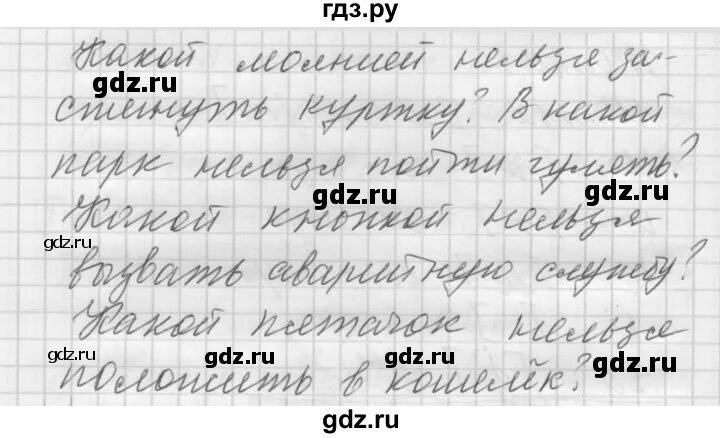 гдз.ру
Какой молнией нельзя за-
gdz.ru
gdz.ru
стегнуть куртку? В какой
парк нельзя пойти гулять?
gdz.ru
gdz.ru
Какой кнопкой нельзя
gdz.ru
вызвать аварийную службу?
Какой пятачок нельзя
gdz.ru
gdz.ru
gdz.ru
положить в кошелёк?
gdz.ru